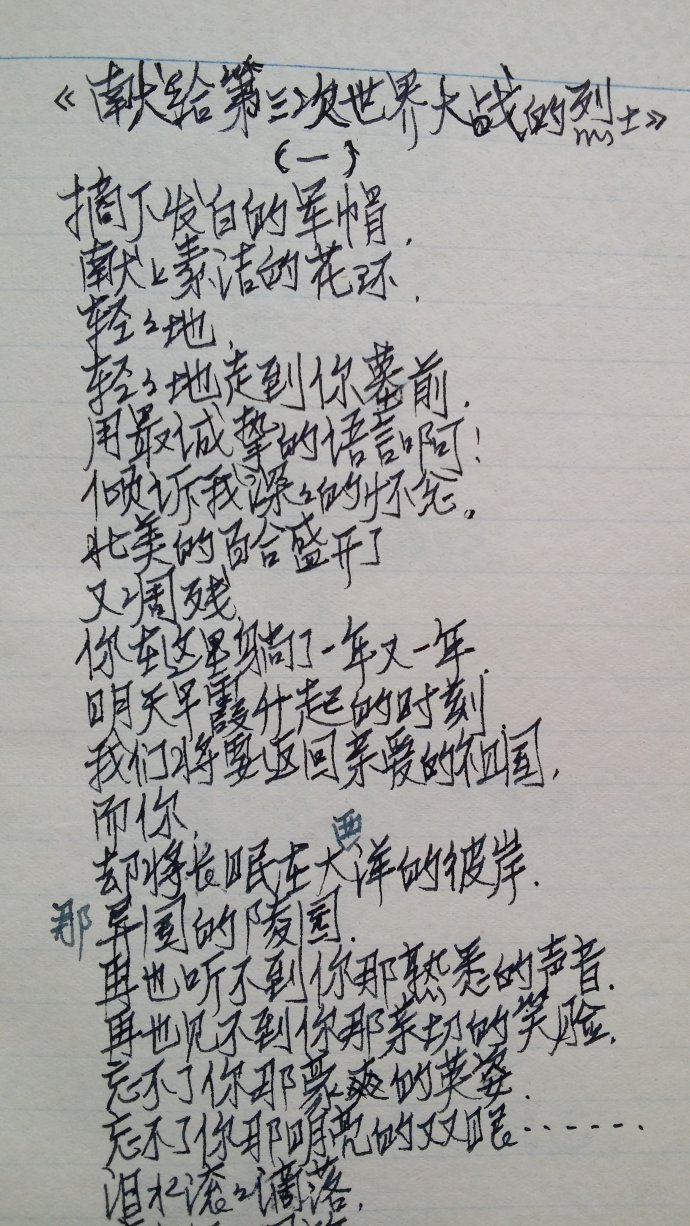 《献给第三次世界大战的烈士》
(一)
摘下发白的军帽,
献上素洁的花环,
轻々地,
轻々地走到你墓前,
用最诚挚的语言啊!
倾诉我深々的怀念。
北美的百合盛开了
又凋残
你在这里躺了一年又一年,
明天早霞升起的时刻,
我们将要返回亲爱的祖国,
而你,
西
却将长眠在大洋的彼岸,
那异国的陵园,
再也听不到你那熟悉的声音,
再也见不到你那亲切的笑脸,
忘不了你那豪爽的英姿,
忘不了你那明亮的双眼······
泪水滚々滴落,